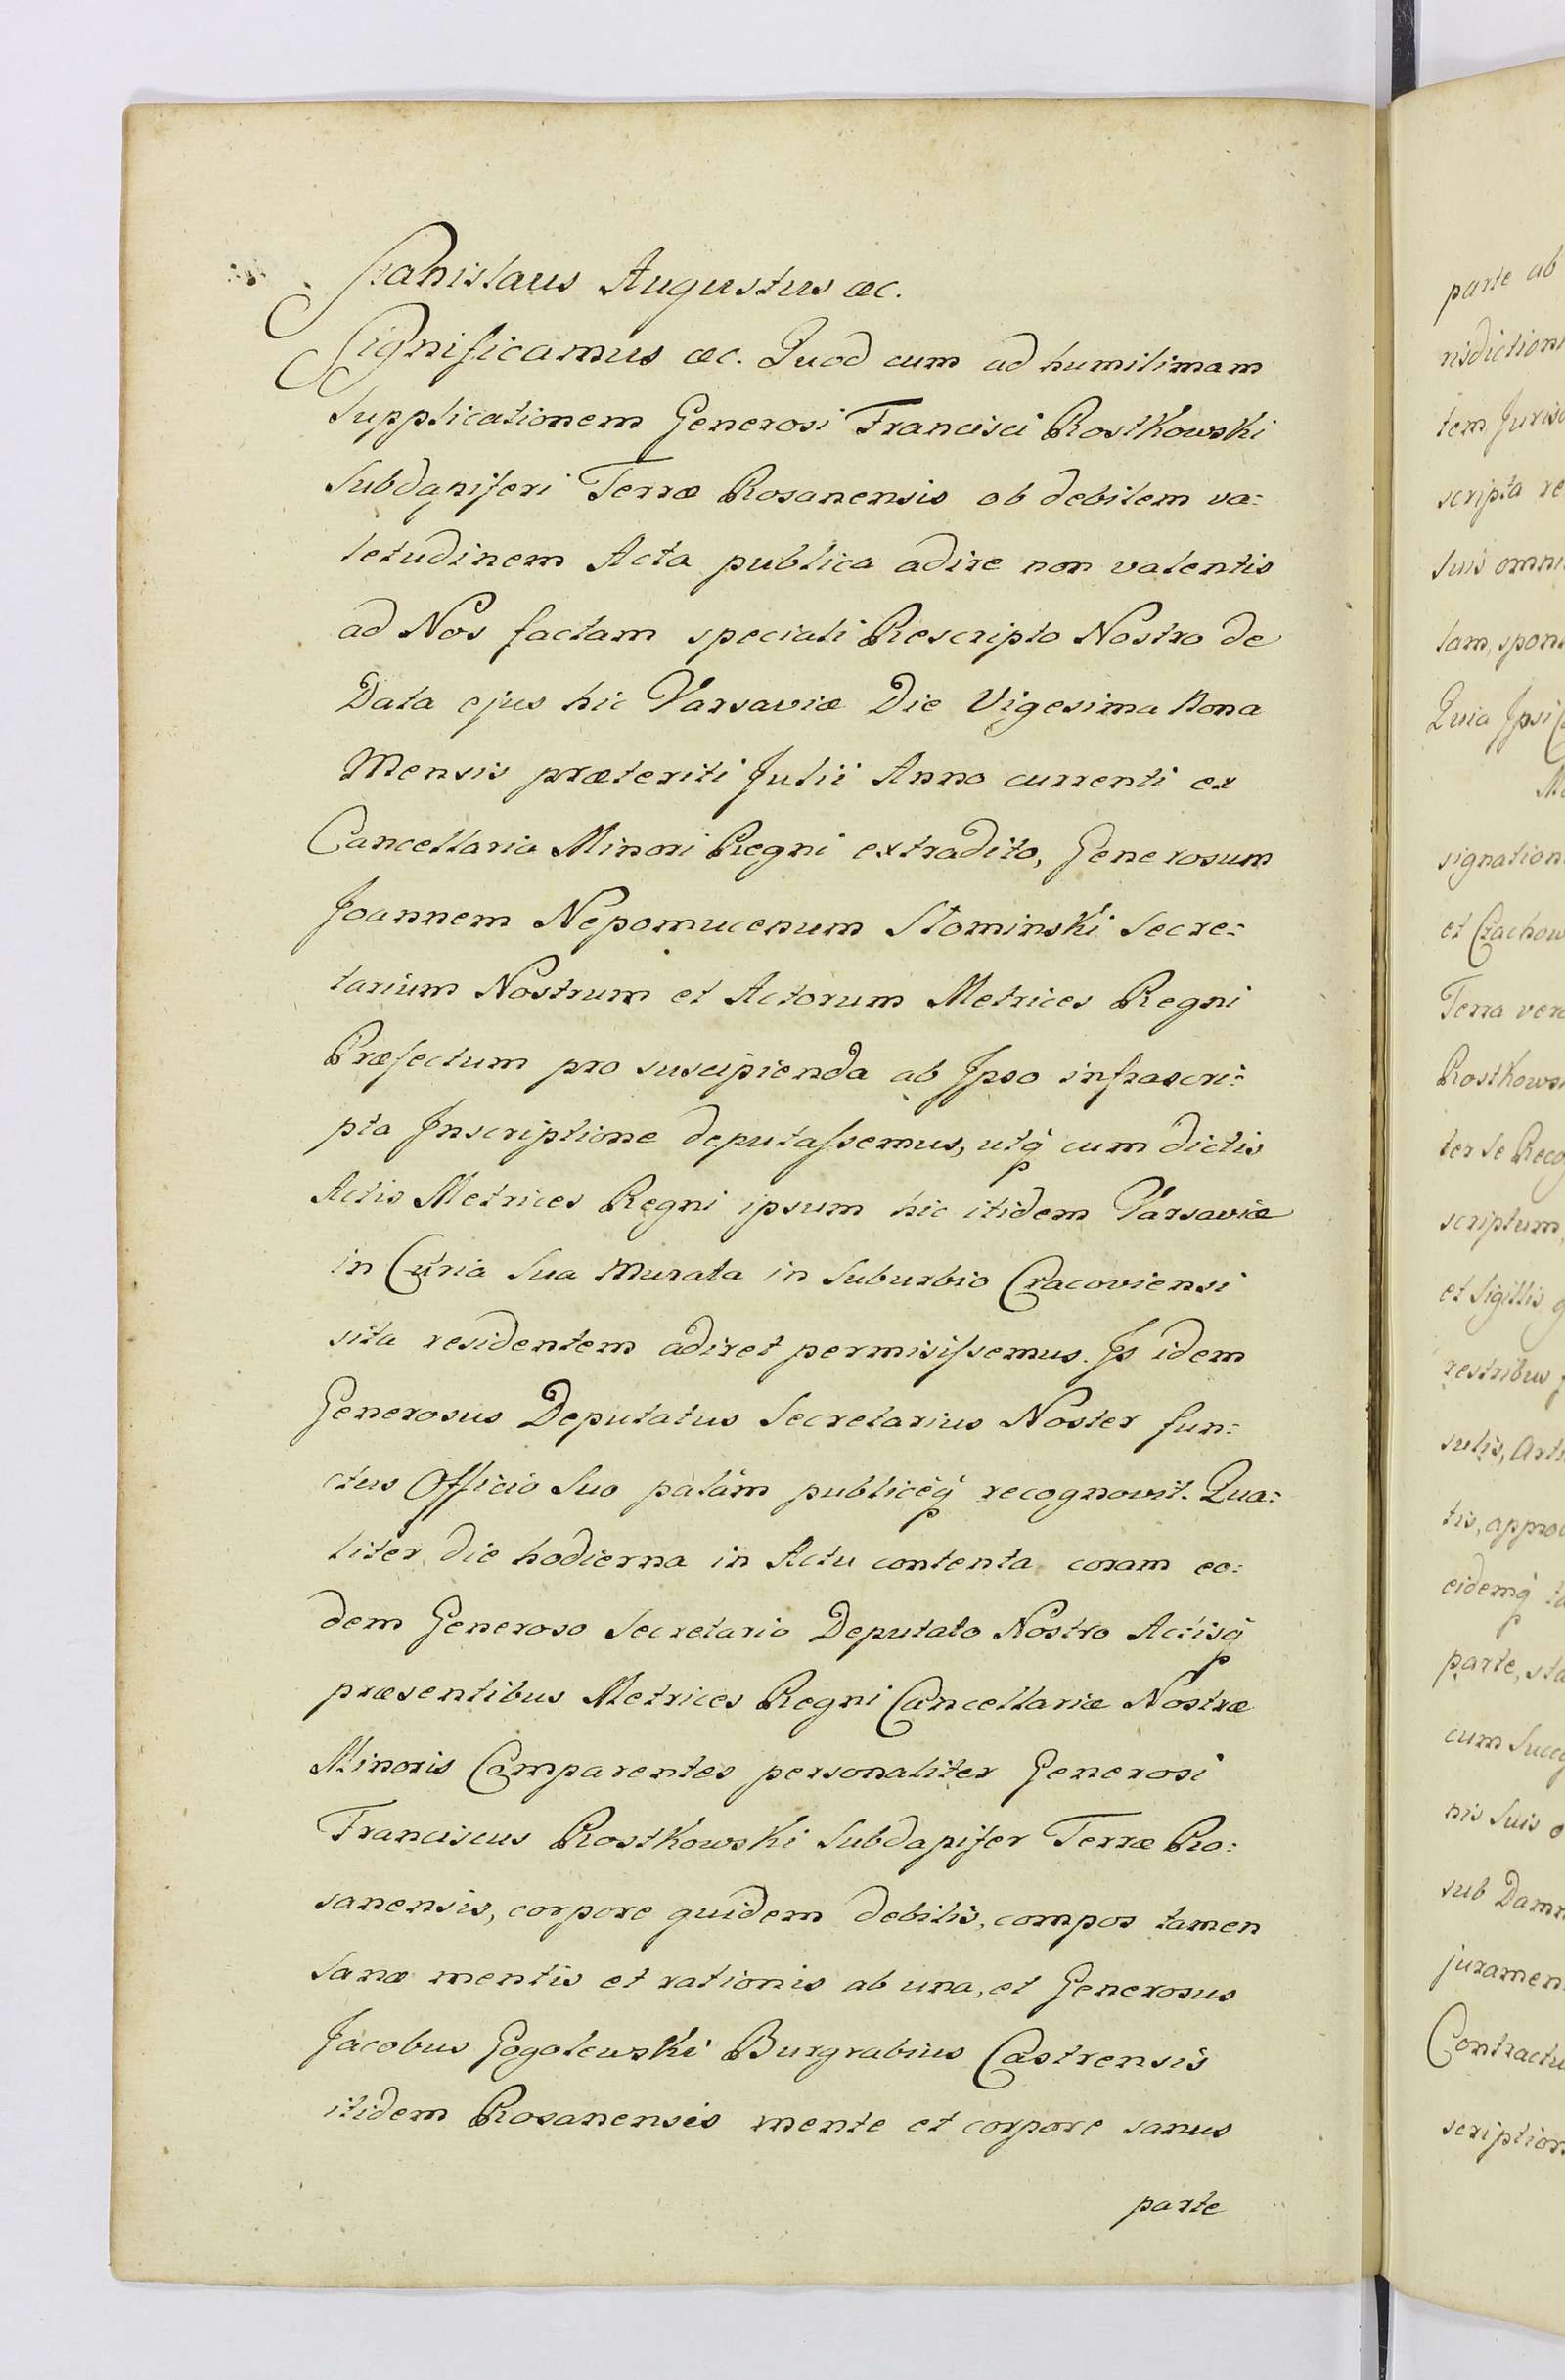 Stanislaus Augustus &c.
Significamus &c. Quod cum ad humilimam
Supplicationem Generosi Francisci Rostkowski
Subdapiferi Terræ Rosanensis ob debilem va:
letudinem Acta publica adire non valentis
ad Nos factam speciali Rescripto Nostro de
Data ejus hic Varsaviæ Die Vigesima Nona
Mensis præteriti Julii Anno currenti ex
Cancellaria Minori Regni extradito, Generosum
Joannem Nepomucenum Słominski Secre:
tarium Nostrum et Actorum Metrices Regni
Præfectum pro suscipienda ab Ipso infrascri:
pta Inscriptione deputassemus, utq cum dictis
Actis Metrices Regni ipsum hic itidem Varsaviæ
in Curia Sua Murata in Suburbio Cracoviensi
sita residentem adiret permisissemus. Is idem
Generosus Deputatus Secretarius Noster fun:
ctus Officio Suo palàm publicèq recognovit. Qua:
liter die hodierna in Actu contenta coram eo:
dem Generoso Secretario Deputato Nostro Actisq
præsentibus Metrices Regni Cancellariæ Nostræ
Minoris Comparentes personaliter Generosi
Franciscus Rostkowski Subdapifer Terræ Ro:
sanensis, corpore quidem debilis, compos tamen
sanæ mentis et rationis ab una, et Generosus
Jacobus Gogolewski Burgrabius Castrensis
itidem Rosanensis mente et corpore sanus
parte
parte ab
risdictioni
tem Jurisd
scripta re
suis omni
tam, spon
Quia Ipsi
signation
et Czachow
Terra vero
Rostkows
ter se Reco
scriptum,
et Sigillis
restribus
sulis, Arti
tis, appro
eidemq
parte, sta
cum Succ
nis Suis o
sub Damn
juramen
Contractu
scription